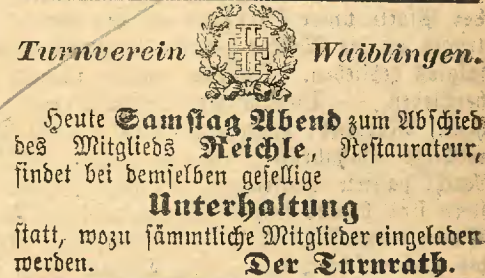 Turnverein Waiblingen.
Heute Samstag Abend zum Abschied
des Mitglieds Reichle, Restaurateur,
findet bei demselben gesellige
Unterhaltung
statt, wozu sämmtliche Mitglieder eingeladen
werden. Der Turnrath.